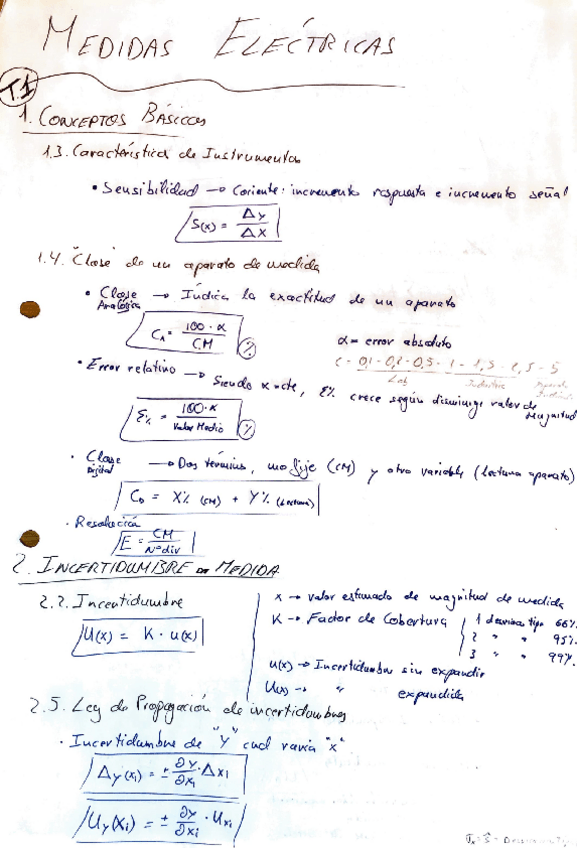 MEDIDAS ELÉCTRICAS
T.1
1. CONCEPTOS BÁSICOS
1.3. Característica de Instrumentos
• Sensibilidad → Cociente: incremento respuesta e incremento señal
S(x) = Δy / Δx
1.4. "Clase" de un aparato de medida
• Clase Analógica → Indica la exactitud de un aparato
C_A = 100 · α / CM %
α = error absoluto
C = 0,1 - 0,2 - 0,5 - 1 - 1,5 - 2,5 - 5
Lab Industria
• Error relativo → Siendo α = cte, E% crece según disminuye valor de magnitud
E% = 100 · α / Valor Medio %
• Clase Digital → Dos términos, uno fije (CM) y otro variable (lectura aparato)
C_D = X% (CM) + Y% (Lectura)
· Resolución
E = CM / Nº div
2. INCERTIDUMBRE DE MEDIDA
2.2. Incertidumbre
U(x) = K · u(x)
x → valor estimado de magnitud de medida
K → Factor de Cobertura
1 desviac tipo 66%
2 " " 95%
3 " " 99%
u(x) → Incertidumbre sin expandir
U(x) → " expandida
2.5. Ley de Propagación de incertidumbres
· Incertidumbre de "Y" cual varía "x"
Δy(xi) = ± ∂y/∂xi · Δxi
Uy(xi) = ± ∂y/∂xi · Uxi